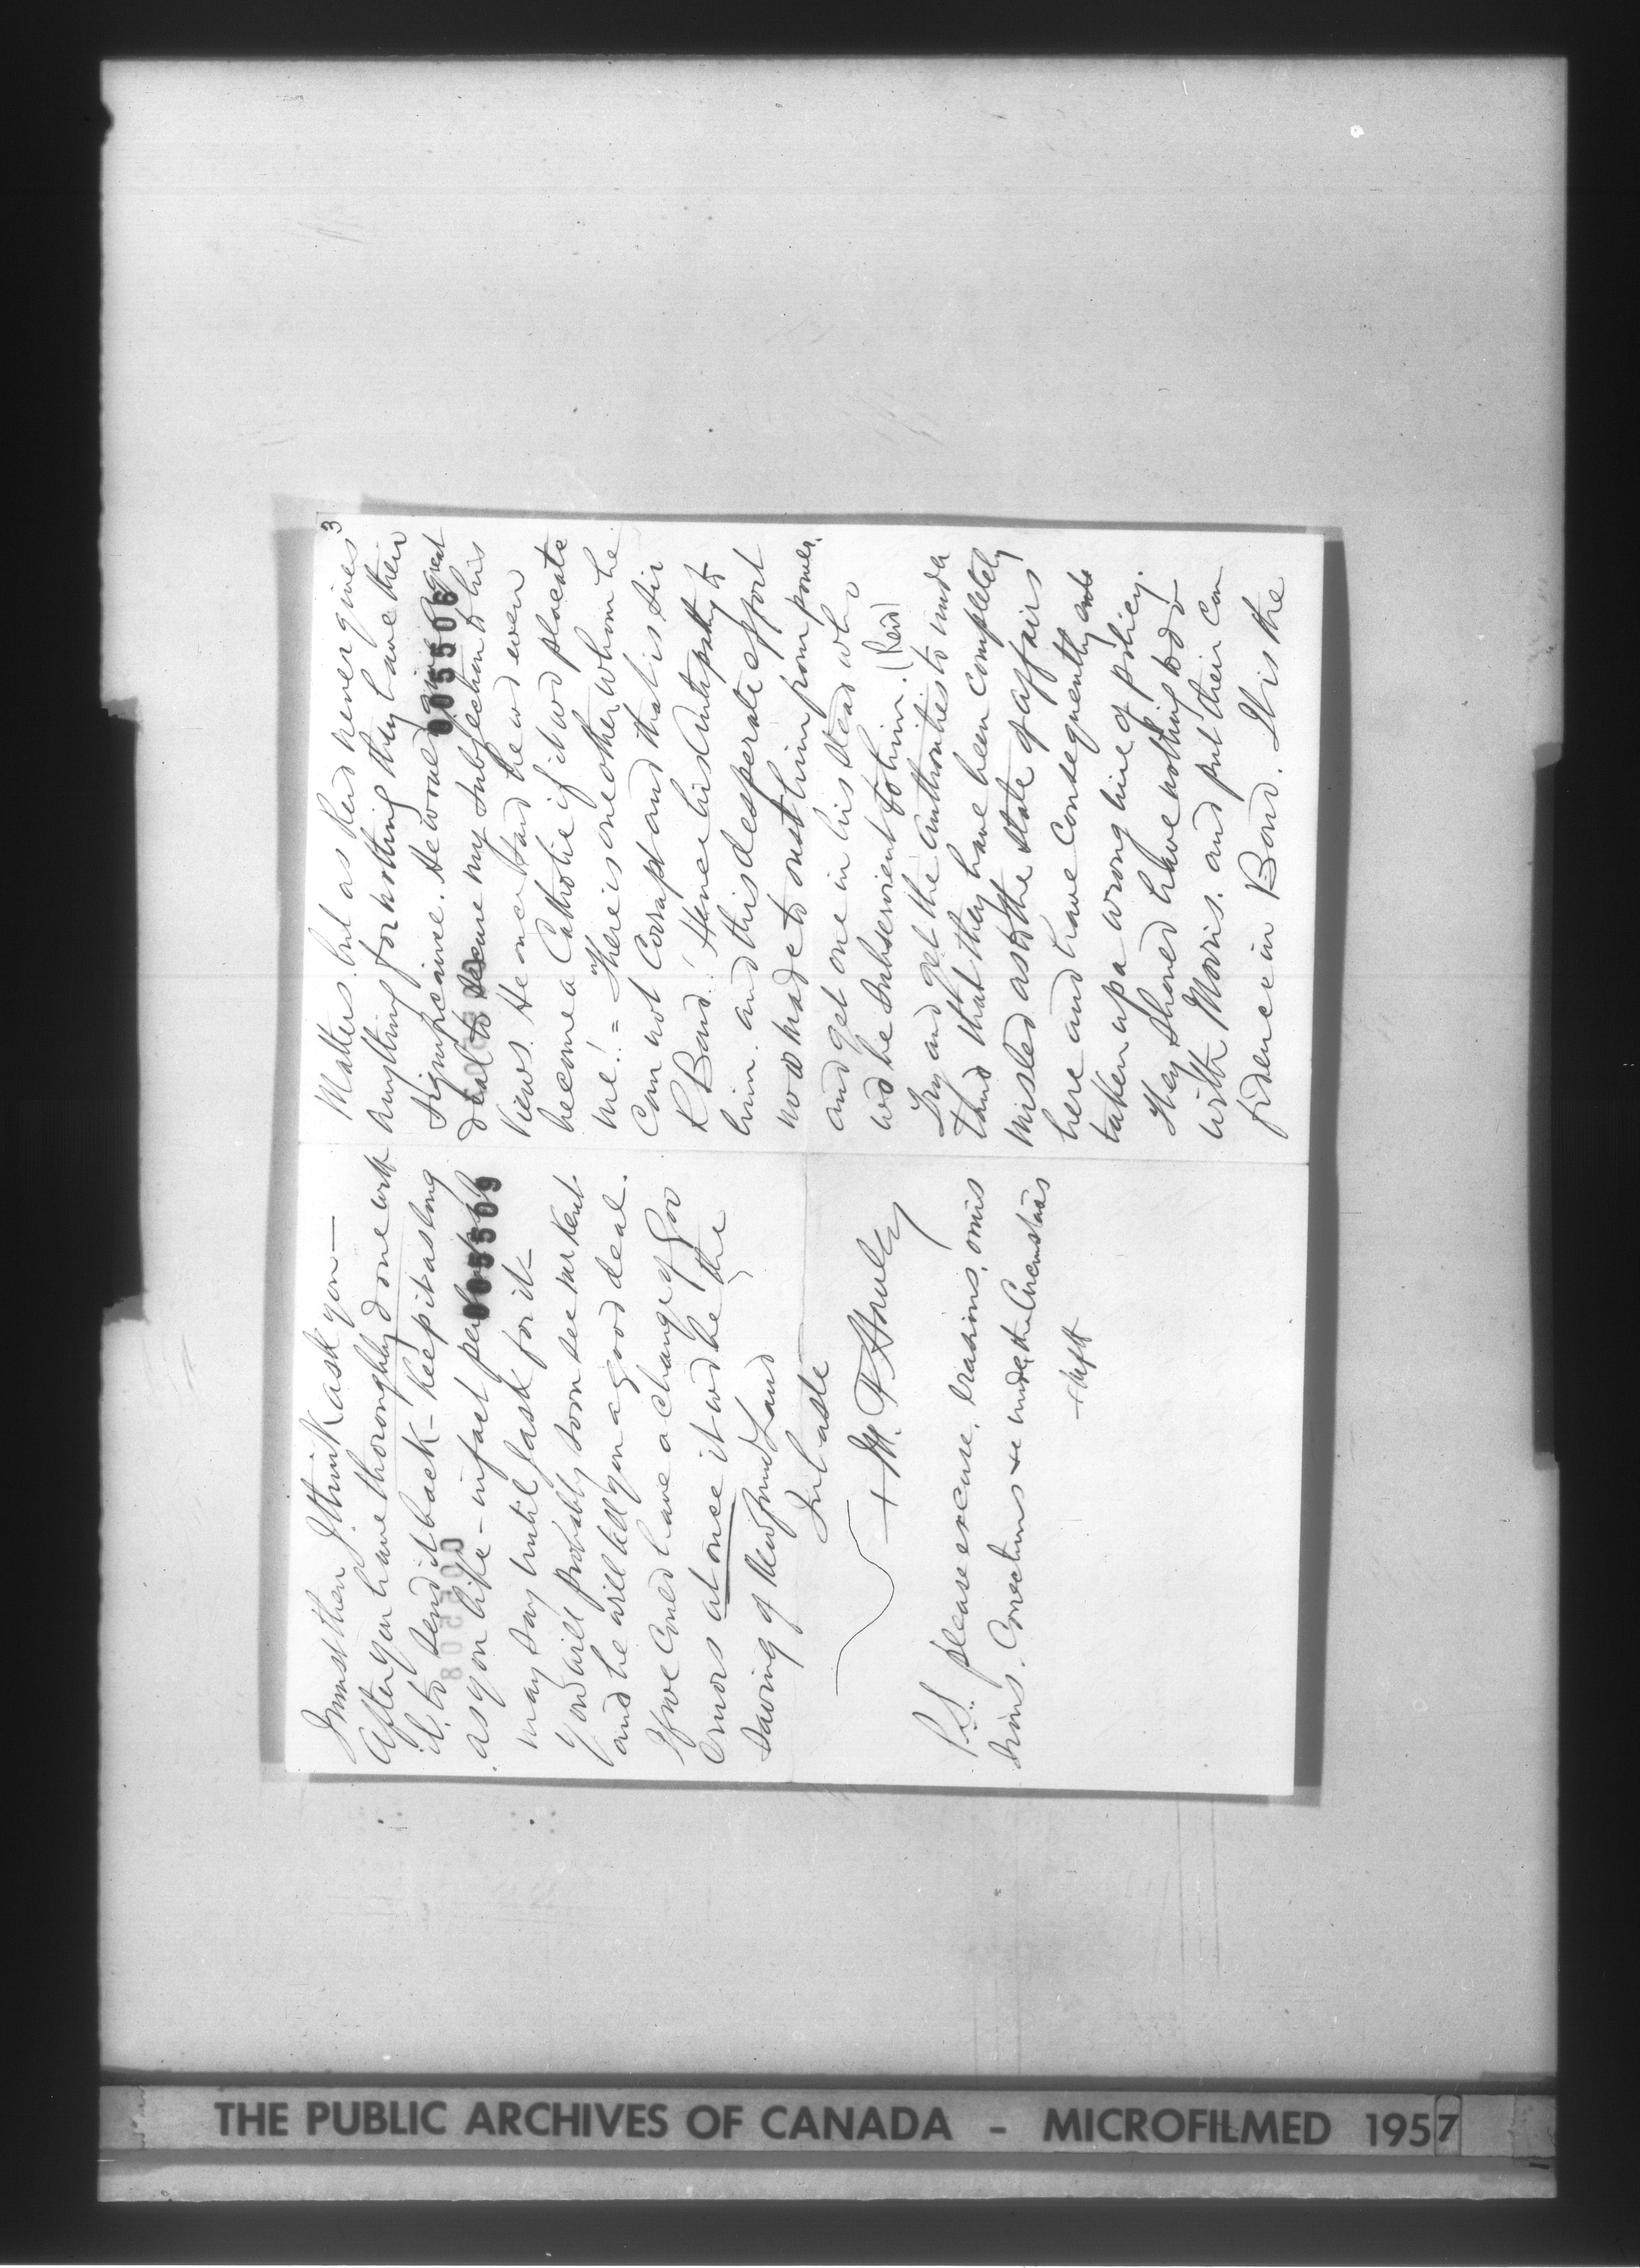 I must then I think ask you —
After you have thoroughly done with
it to send it back — keep it as long
as you like — in fact
005509
may say until I ask for it —
You will probably soon see Mr Kent
and he will tell you a good deal.
If we could have a change of Gov
ernors at once it wd be the
Saving of Newfoundland
In haste
+ M. F. Howley
P.S. please excuse, erasions, omis
sions. Corrections &c under the Circumstances
+ MFH
3
Matters. but as Reid never gives
Anything for nothing they have their
Significance. He would give a great
005506
deal to secure my subjection to his
views. He once said he wd even
become a Catholic if it wd placate
me! = There is one other whom he
Can not Corrupt and that is Sir
R Bond! Hence his Antipathy to
him. and this desperate effort
now made to oust him from power.
and get one in his stead who
wd be subservient to him. (Reid)
Try and get the authorities to unders
tand that they have been completely
misled as to the state of affairs
here and have consequently
taken up a wrong line of policy.
They should have nothing to do
with Morris. and put their con
fidence in Bond. It is the
THE PUBLIC ARCHIVES OF CANADA - MICROFILMED 1957